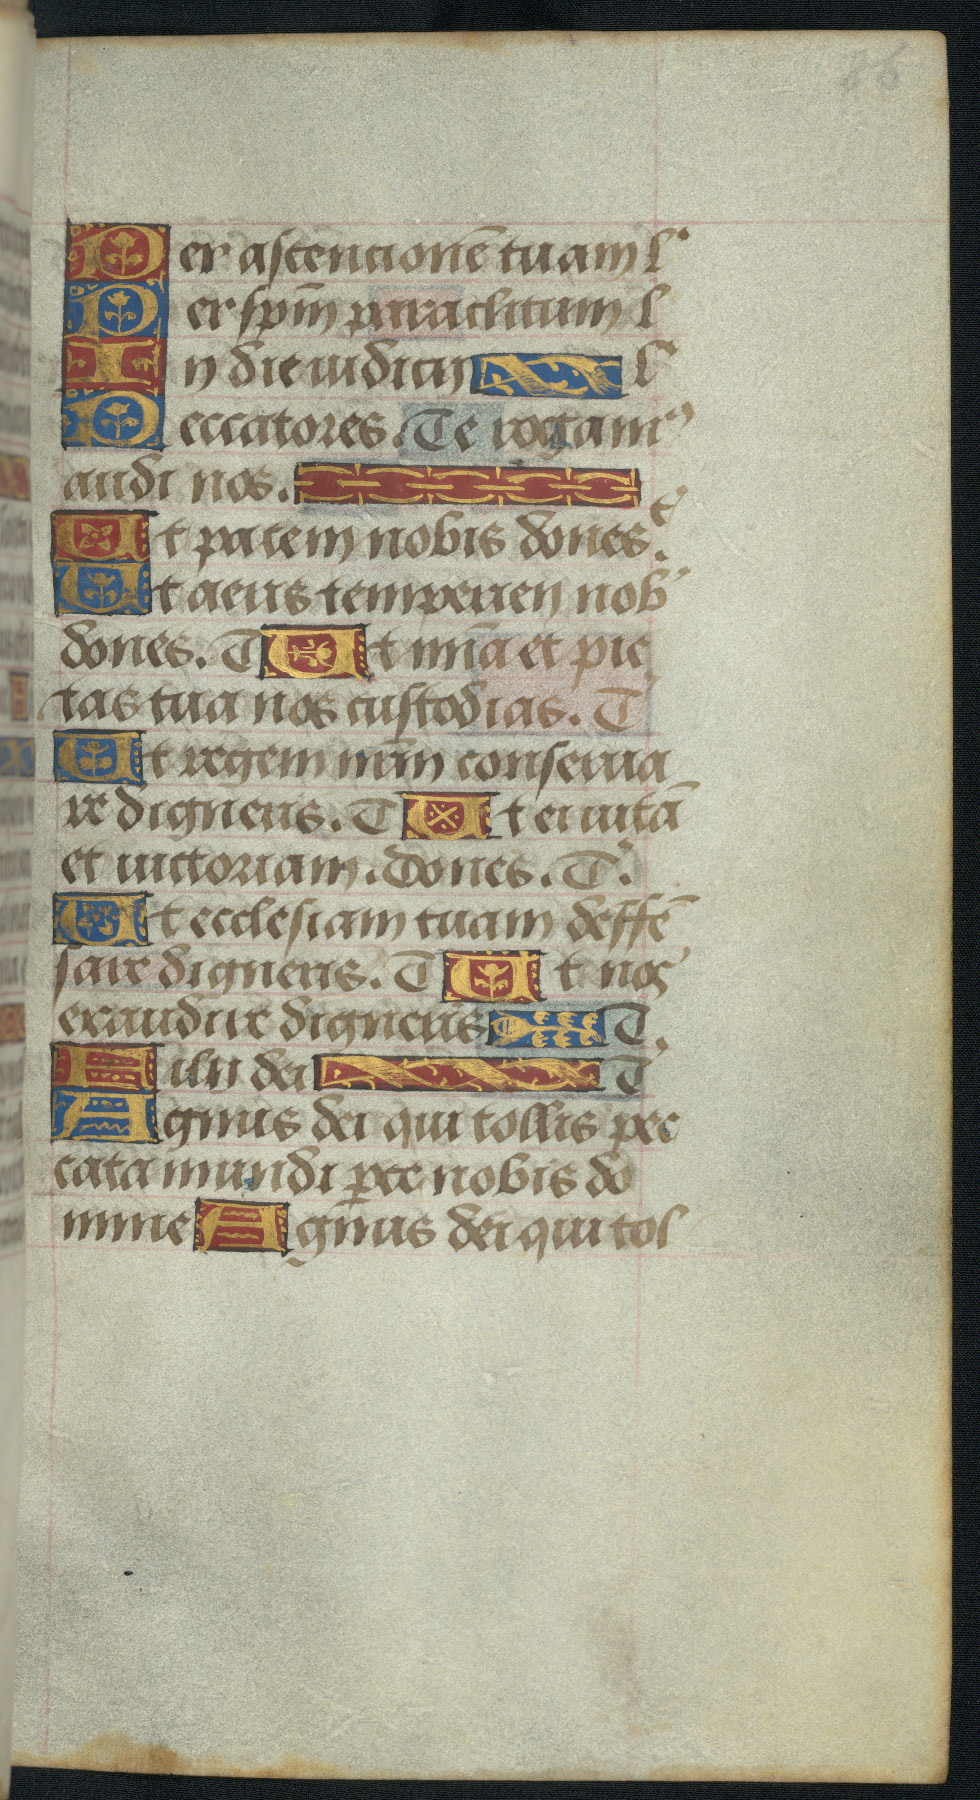 86
Per ascencionē tuam l'
Per sp̄m paraclitum l
In die iudicij l'
Peccatores. Te rogam'
audi nos.
Ut pacem nobis dones. t'
Ut aeris temperien nob'
dones. T Ut mīa et pie
tas tua nos custodias. T
Ut regem nr̄m conserua
re digneris. T Ut ei uitā
et uictoriam. dones. T.
Ut ecclesiam tuam deffē
sare digneris. T Ut nos
exaudire digneris T.
Fili dei T
Agnus dei qui tollis pec
cata mundi parce nobis do
mine Agnus dei qui tol